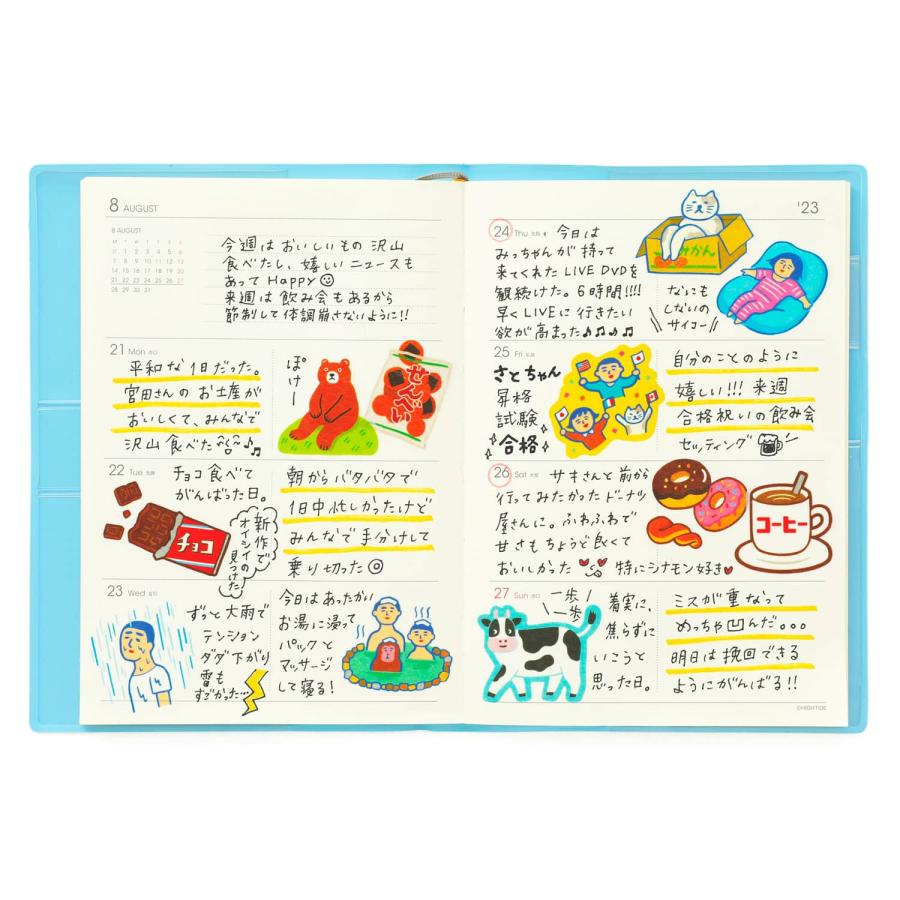 8 AUGUST
8 AUGUST
M T W T F S S
31 1 2 3 4 5 6
7 8 9 10 11 12 13
14 15 16 17 18 19 20
21 22 23 24 25 26 27
28 29 30 31
今週はおいしいもの 沢山
食べたし、嬉しいニュースも
あって HAPPY
来週は飲み会もあるから
節制して体調崩さないように!!
21 Mon
平和な1日だった。
宮田さんのお土産が
おいしくて、みんなで
沢山食べた♪
ぽけー
せんべい
22 Tue 先勝
チョコ食べて
がんばった日。
新作で
オイシイの
見つけた!
チョコ
朝からバタバタで
1日中忙しかったけど
みんなで手分けして
乗り切った◎
23 Wed 友引
ずっと大雨で
テンション
ダダ下がり
雷も
すごかった…
今日はあったかい
お湯に浸って
パックと
マッサージ
して寝る!
'23
24 Thu 先負
今日は
みっちゃんが持って
来てくれた LIVE DVDを
観続けた。6時間!!!!
早くLIVEに行きたい
欲が高まった♪♫♪♫
みかん
\\ なにも
しないの
サイコー //
25 Fri 仏滅
さとちゃん
昇格
試験
合格
自分のことのように
嬉しい!!! 来週
合格祝いの飲み会
セッティング
26 Sat 大安
サキさんと前から
行ってみたかったドーナツ
屋さんに。ふわふわで
甘さもちょうど良くて
おいしかった 特にシナモン好き♥
コーヒー
27 Sun 赤口
\一歩/
\一歩/
着実に、
焦らずに
いこうと
思った日。
ミスが重なって
めっちゃ凹んだ。。。
明日は挽回できる
ようにがんばる!!
©HIGHTIDE